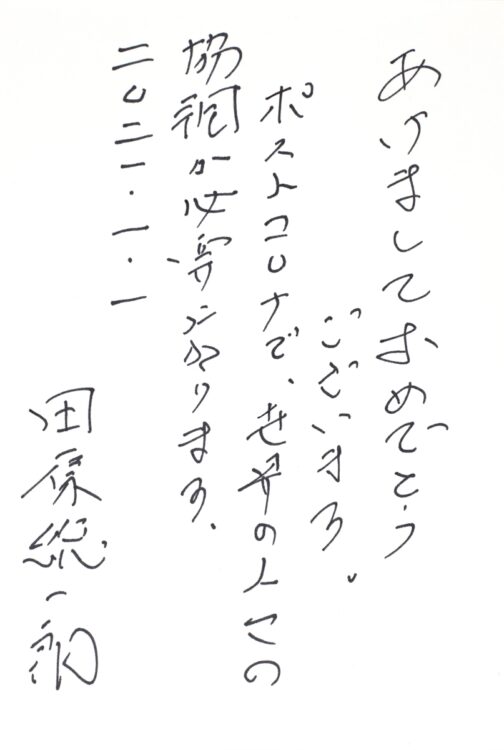 あけましておめでとう
ございます。
ポストコロナで、世界の人々の
協調が必要になります。
二〇二一・一・一
田原総一朗